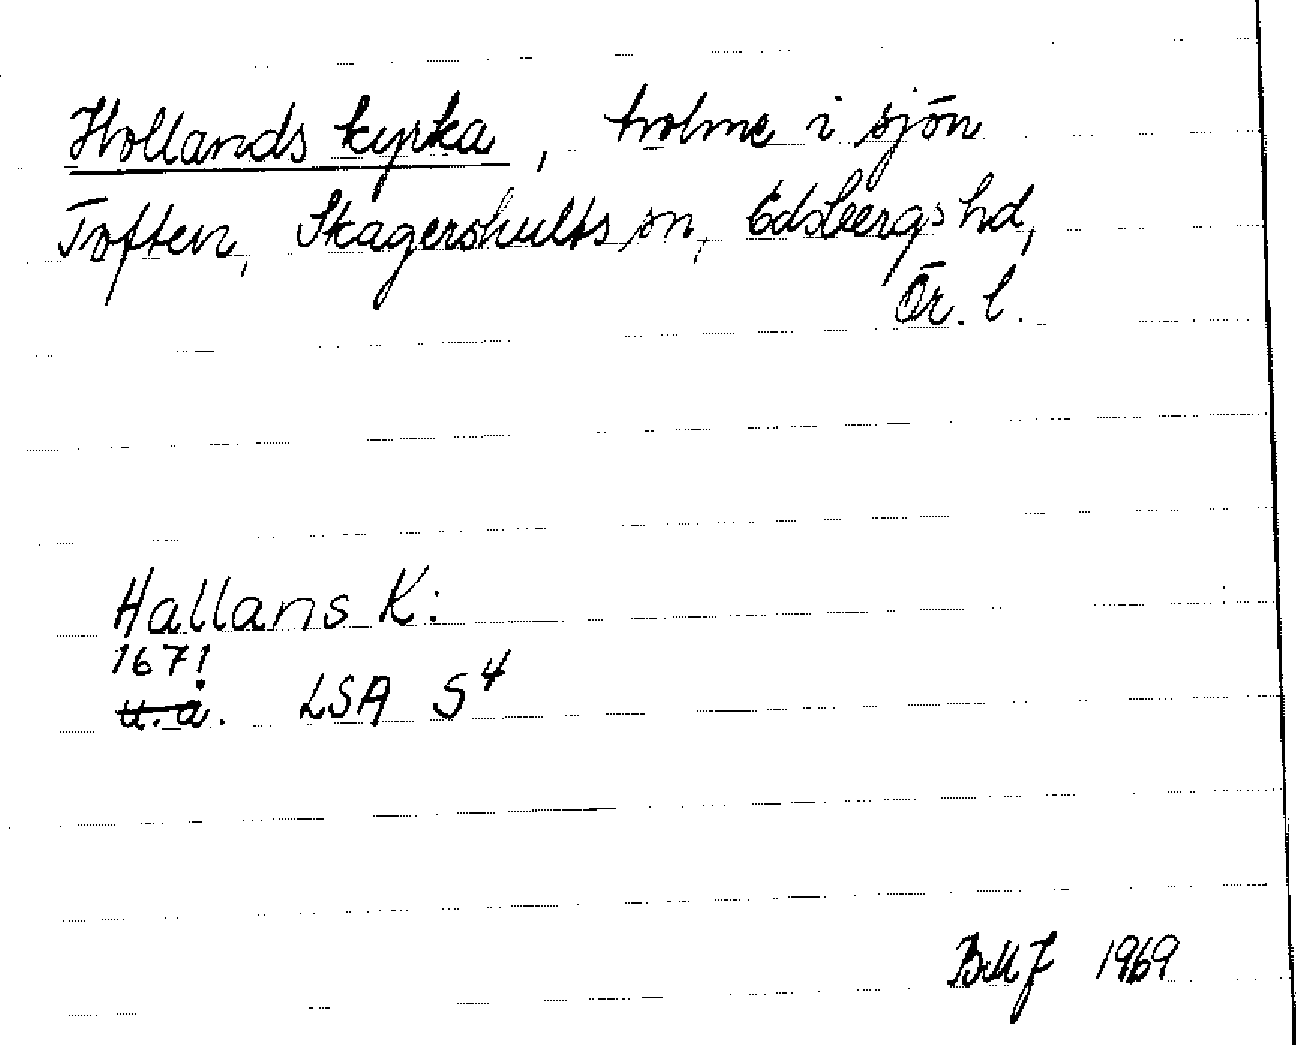 Hollands kyrka, holme i sjön
Toften, Skagershults sn, Edsbergs hd,
Ör. l.
Hallans K:
1671
u. å. LSA S4
BMJ 1969